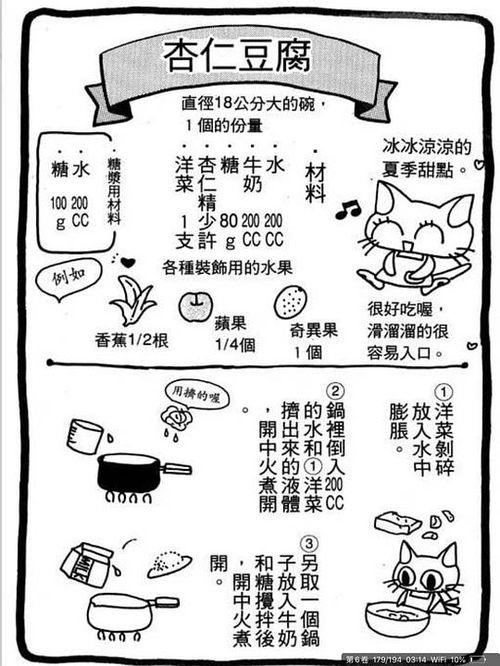 杏仁豆腐
直徑18公分大的碗，
1個的份量
冰冰涼涼的
夏季甜點。
・材料
・水 200CC
・牛奶 200CC
・糖 80g
・杏仁精 少許
・洋菜 1支
・糖漿用材料
・水 200CC
・糖 100g
各種裝飾用的水果
例如
香蕉1/2根
蘋果
1/4個
奇異果
1個
很好吃喔，
滑溜溜的很
容易入口。
①洋菜剝碎
放入水中
膨脹。
②鍋裡倒入200CC
的水和①洋菜
擠出來的液體
，開中火煮開
。
用擠的喔
③另取一個鍋
子放入牛奶
和糖攪拌後
，開中火煮
開。
MILK
第6卷 179/194 03:14 WiFi 10%